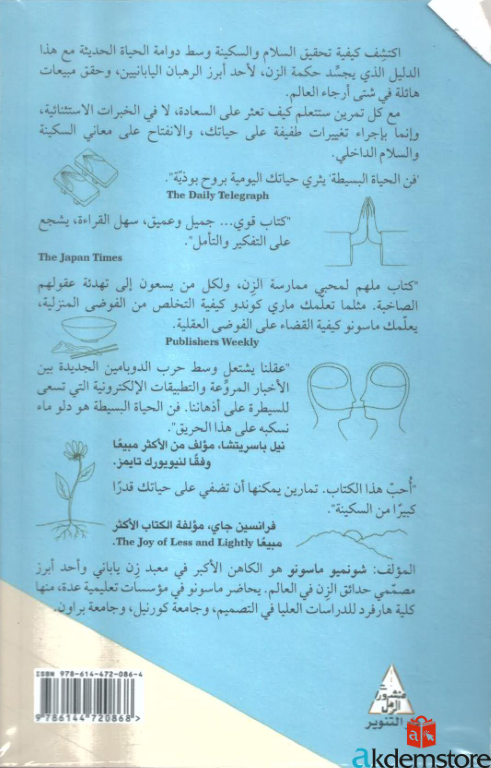 اكتشِف كيفية تحقيق السلام والسكينة وسط دوامة الحياة الحديثة مع هذا
الدليل الذي يجسِّد حكمة الزن، لأحد أبرز الرهبان اليابانيين، وحقق مبيعات
هائلة في شتى أرجاء العالم.
مع كل تمرين ستتعلم كيف تعثر على السعادة، لا في الخبرات الاستثنائية،
وإنما بإجراء تغييرات طفيفة على حياتك، والانفتاح على معاني السكينة
والسلام الداخلي.
'فن الحياة البسيطة' يثري حياتك اليومية بروح بوذيّة".
The Daily Telegraph
"كتاب قوي... جميل وعميق، سهل القراءة، يشجع
على التفكير والتأمل".
The Japan Times
"كتاب ملهم لمحبي ممارسة الزن، ولكل من يسعون إلى تهدئة عقولهم
الصاخبة. مثلما تعلّمك ماري كوندو كيفية التخلص من الفوضى المنزلية،
يعلّمك ماسونو كيفية القضاء على الفوضى العقلية.
Publishers Weekly
"عقلنا يشتعل وسط حرب الدوبامين الجديدة بين
الأخبار المروِّعة والتطبيقات الإلكترونية التي تسعى
للسيطرة على أذهاننا. فن الحياة البسيطة هو دلو ماء
نسكبه على هذا الحريق".
نيل باسريتشا، مؤلف من الأكثر مبيعًا
وفقًا لنيويورك تايمز.
"أُحبّ هذا الكتاب. تمارين يمكنها أن تضفي على حياتك قدرًا
كبيرًا من السكينة".
فرانسين جاي، مؤلفة الكتاب الأكثر
مبيعًا The Joy of Less and Lightly.
المؤلف: شونميو ماسونو هو الكاهن الأكبر في معبد زِن ياباني وأحد أبرز
مصمّمي حدائق الزن في العالم. يحاضر ماسونو في مؤسسات تعليمية عدة، منها
كلية هارفرد للدراسات العليا في التصميم، وجامعة كورنيل، وجامعة براون.
ISBN 978-614-472-086-4
9 786144 720868 >
منشورات
الرمل
التنوير
akdemstore